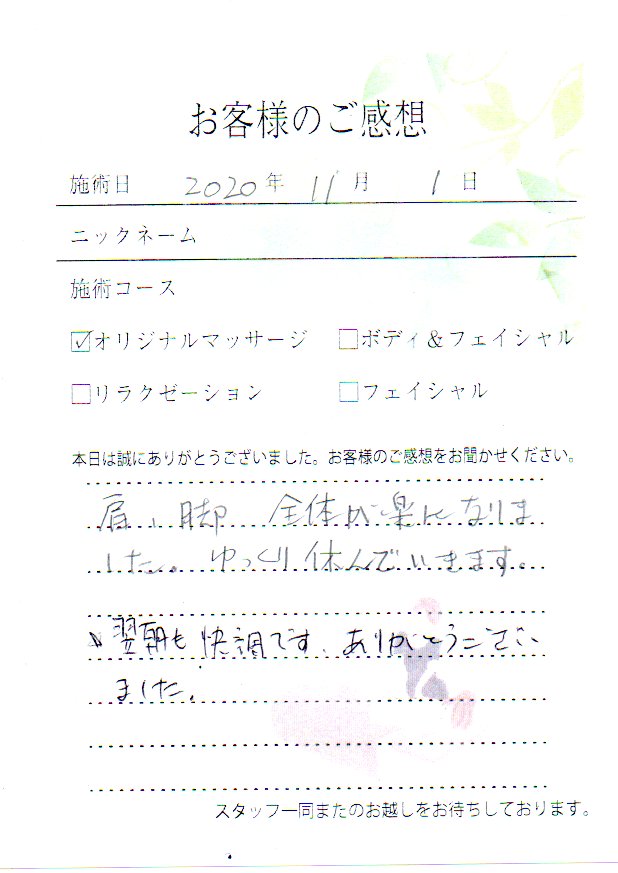 お客様のご感想
施術日 2020年 11月 1日
ニックネーム
施術コース
☑オリジナルマッサージ □ボディ&フェイシャル
□リラクゼーション □フェイシャル
本日は誠にありがとうございました。お客様のご感想をお聞かせください。
肩、脚 全体が楽になりま
した。ゆっくり休んでいきます。
翌朝も快調です、ありがとうござい
ました。
スタッフ一同またのお越しをお待ちしております。